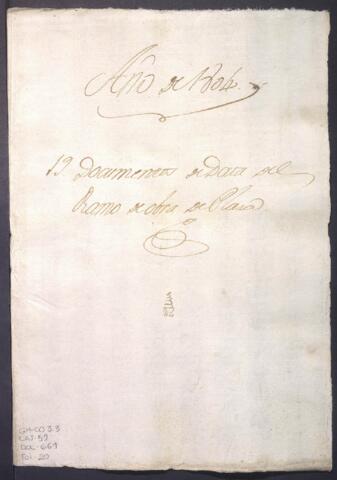 Año de 1804
19. Documentos de Data del
Ramo de obra de Plaza
GM-CO 3.3
CAJ-59
DOC-669
Fol-20